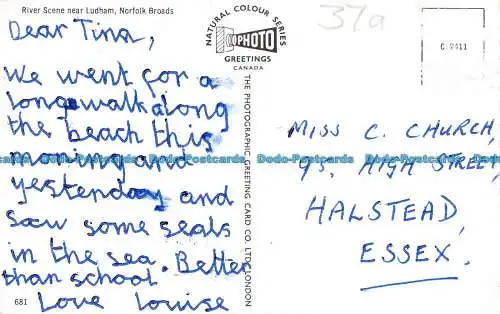 River Scene near Ludham, Norfolk Broads
Dear Tina,
We went for a
long walk along
the beach this
morning and
yesterday and
saw some seals
in the sea. Better
than school.
Love Louise
681
NATURAL COLOUR SERIES
PHOTO
GREETINGS
CANADA
THE PHOTOGRAPHIC GREETING CARD CO. LTD. LONDON
37a
C.2411
MISS C. CHURCH
95, HIGH STREET,
HALSTEAD,
ESSEX.
Dodo-Postcards Dodo-Postcards Dodo-Postcards Dodo-Postcards Dodo-Postcards